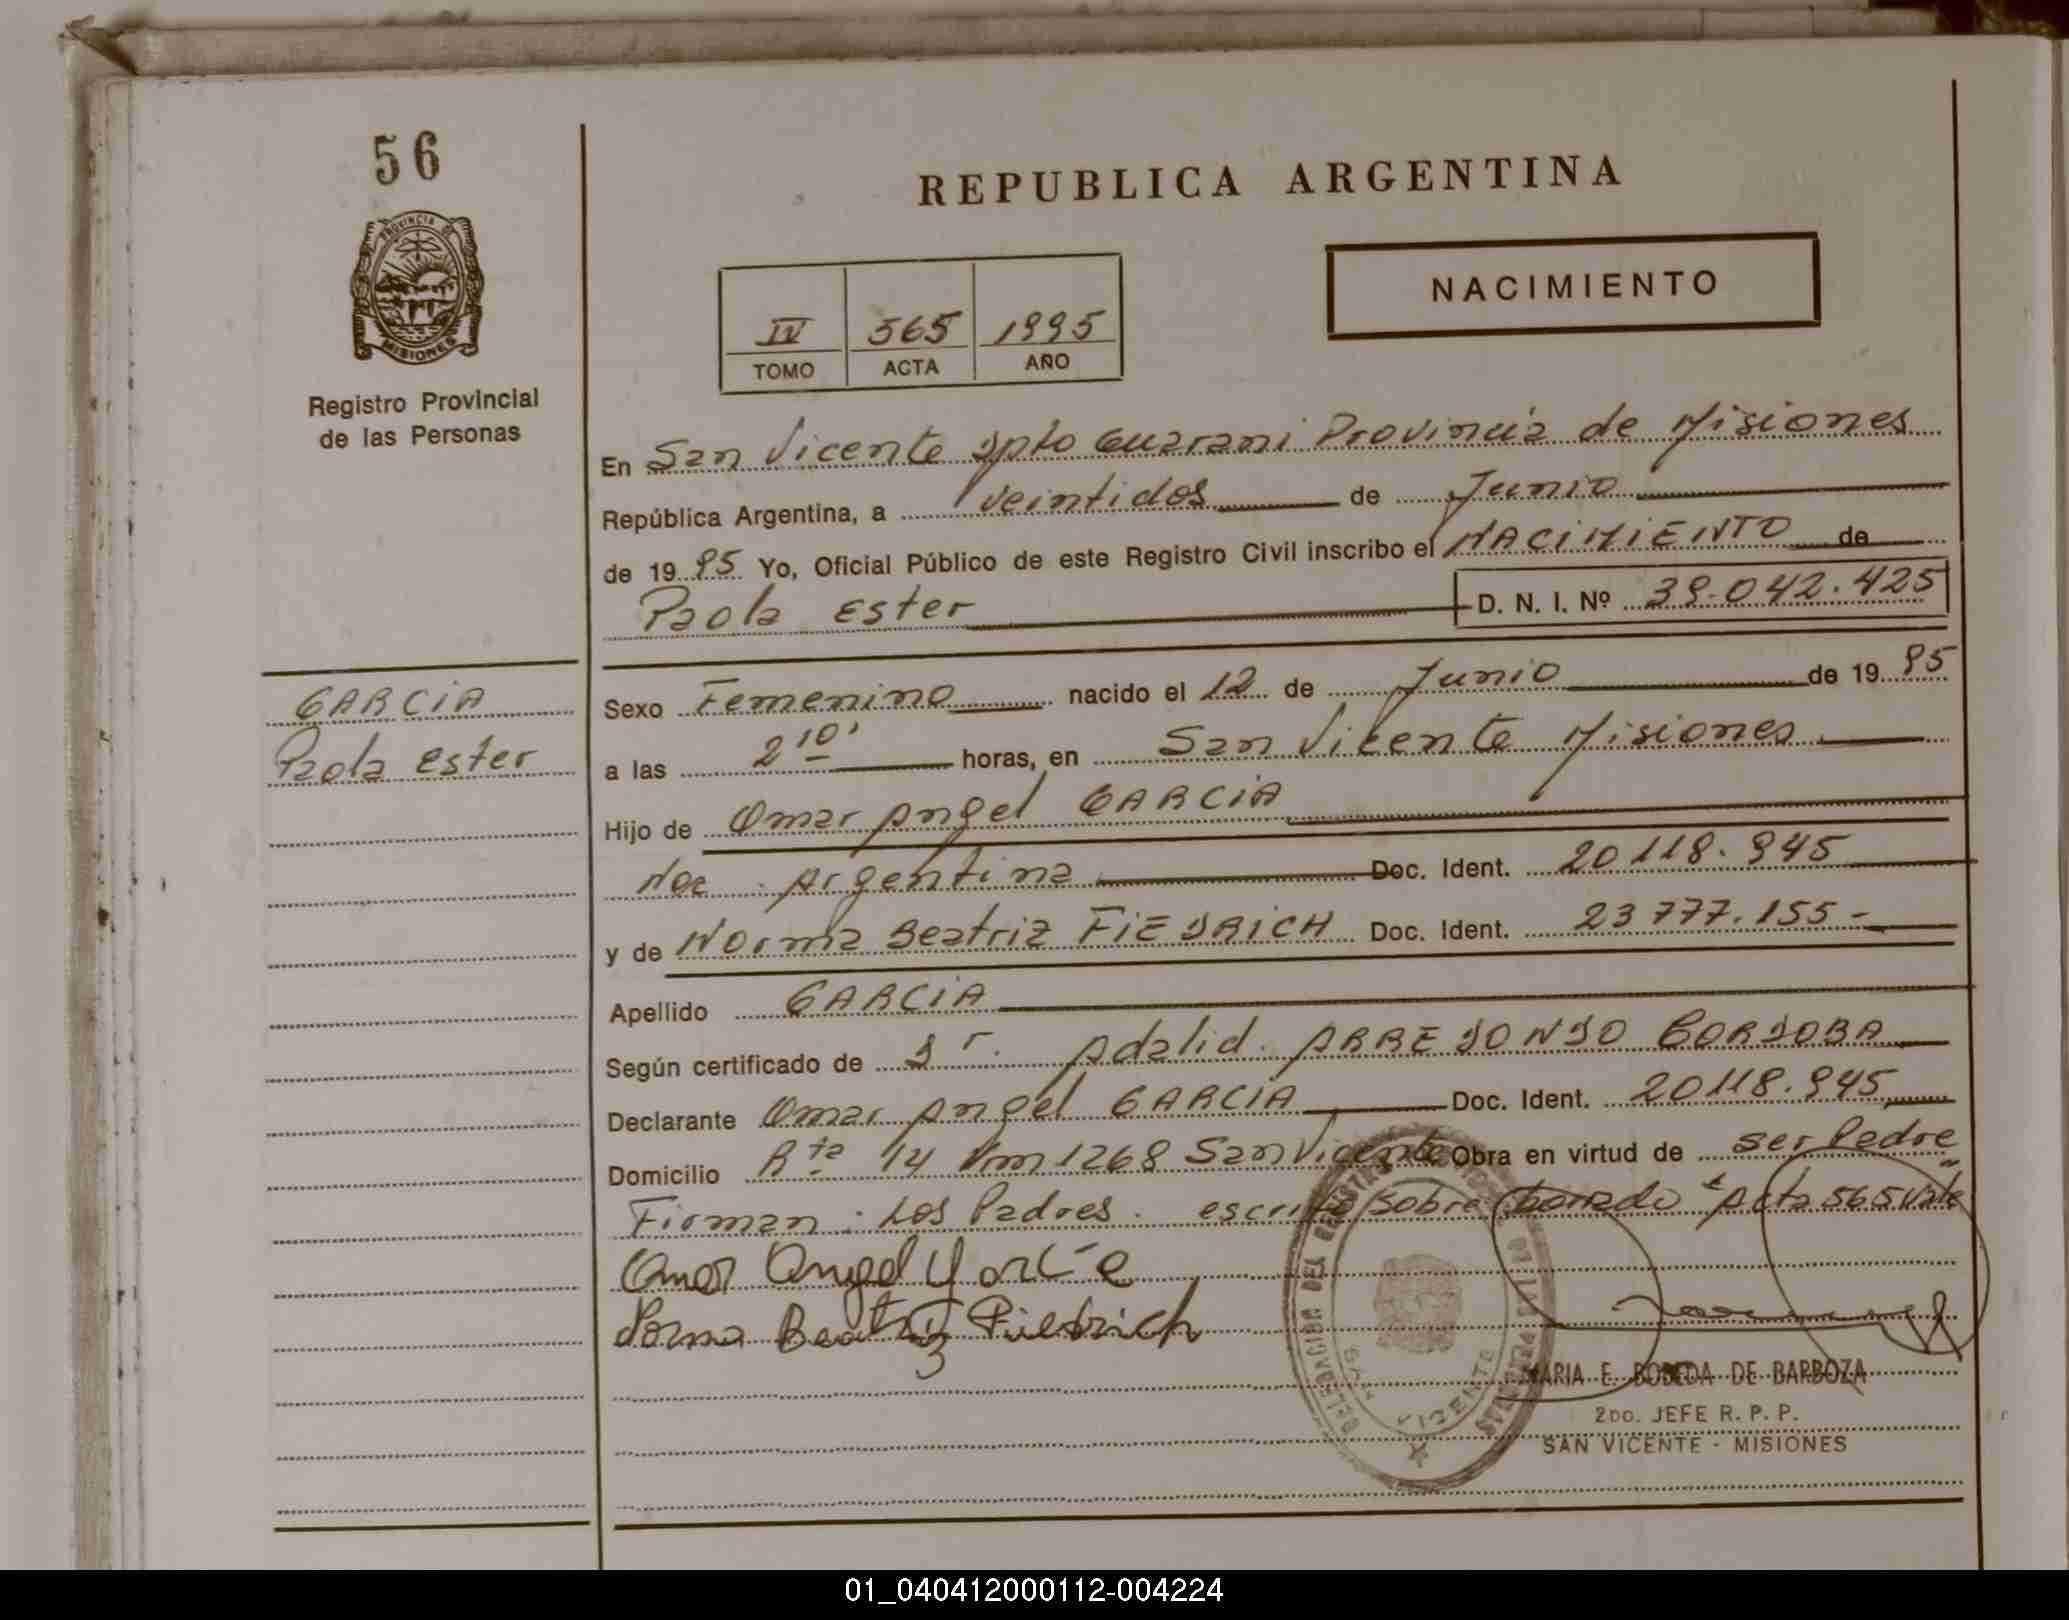 56
REPUBLICA ARGENTINA
PROVINCIA DE
MISIONES
NACIMIENTO
IV 565 1995
TOMO ACTA AÑO
Registro Provincial
de las Personas
En San Vicente Dpto Guarani Provincia de Misiones
República Argentina, a veintidos de Junio
de 1995 Yo, Oficial Público de este Registro Civil inscribo el NACIMIENTO de
Paola Ester D. N. I. Nº 39.042.425
GARCIA
Paola Ester
Sexo Femenino nacido el 12 de Junio de 1995
a las 2 10' horas, en San Vicente Misiones
Hijo de Omar Angel GARCIA
Nac. Argentina Doc. Ident. 20118.945
y de Norma Beatriz FIEDRICH Doc. Ident. 23777.155-
Apellido GARCIA
Según certificado de Dr. Adalid ARREDONDO CORDOBA
Declarante Omar Angel GARCIA Doc. Ident. 20118.945
Domicilio Rta 14 Km 1268 San Vicente Obra en virtud de ser Padre
Firman: Los Padres. escrito sobre borrado "Acta 565 vale"
Omar Angel Garcia
Norma Beatriz Fiedrich
DELEGACION DEL REGISTRO PROVINCIAL DE LAS PERSONAS
SAN VICENTE
MARIA E. BOBEDA DE BARBOZA
2DO. JEFE R. P. P.
SAN VICENTE - MISIONES
01_040412000112-004224